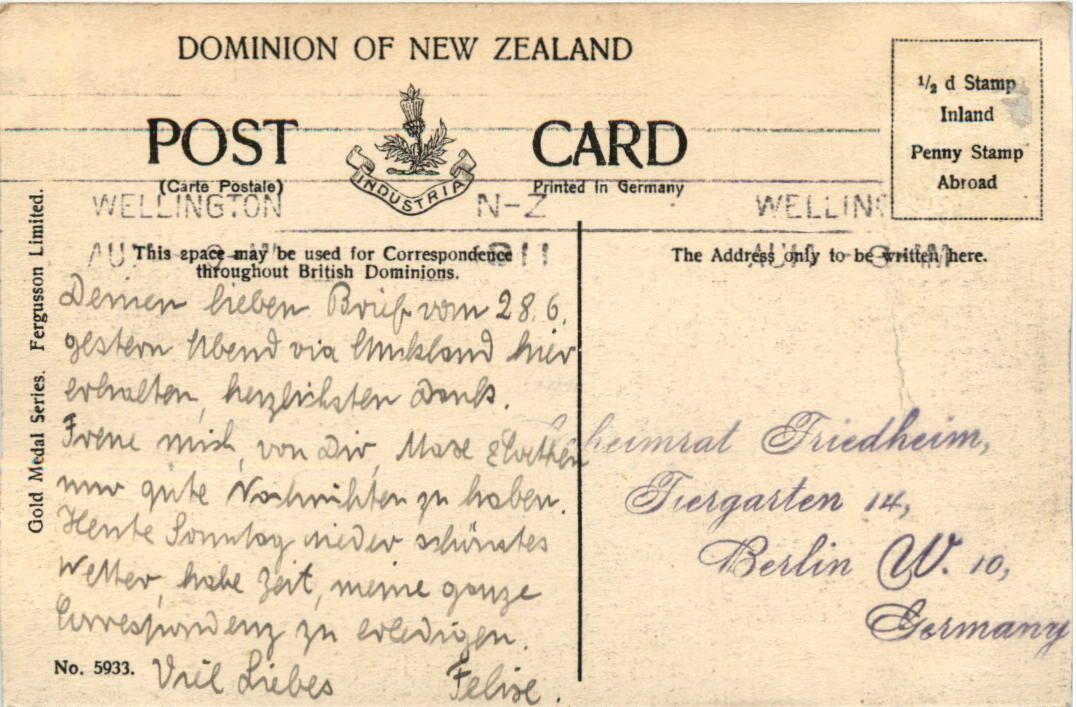 DOMINION OF NEW ZEALAND
POST CARD
(Carte Postale)
INDUSTRIA
Printed in Germany
½ d Stamp
Inland
Penny Stamp
Abroad
WELLINGTON N-Z WELLIN
This space may be used for Correspondence
throughout British Dominions.
The Address only to be written here.
Gold Medal Series. Fergusson Limited.
Deinen lieben Brief vom 28.6.
gestern Abend via Auckland hier
erhalten, herzlichsten Dank.
Freue mich, von Dir, Maxe
nur gute Nachrichten zu haben.
Heute Sonntag wieder schönstes
Wetter, habe Zeit, meine ganze
Correspondenz zu erledigen.
Viel Liebes Felixe.
No. 5933.
Geheimrat Friedheim,
Tiergarten 14,
Berlin W. 10,
Germany